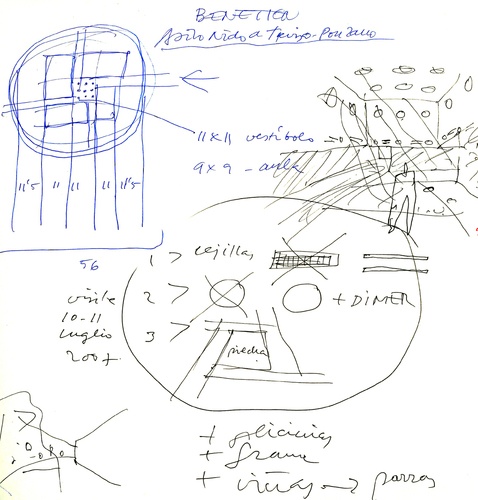 BENETTON
Asilo Nido a Treviso-Ponzano
11x11 vestíbolo
9x9 - aula
11'5 11 11 11 11'5
56
1 > cejillas
visite 2 > + DIMER
10-11
luglio 3 >
2007.
piedra
+ glicinias
+ grama
+ viñas → parras